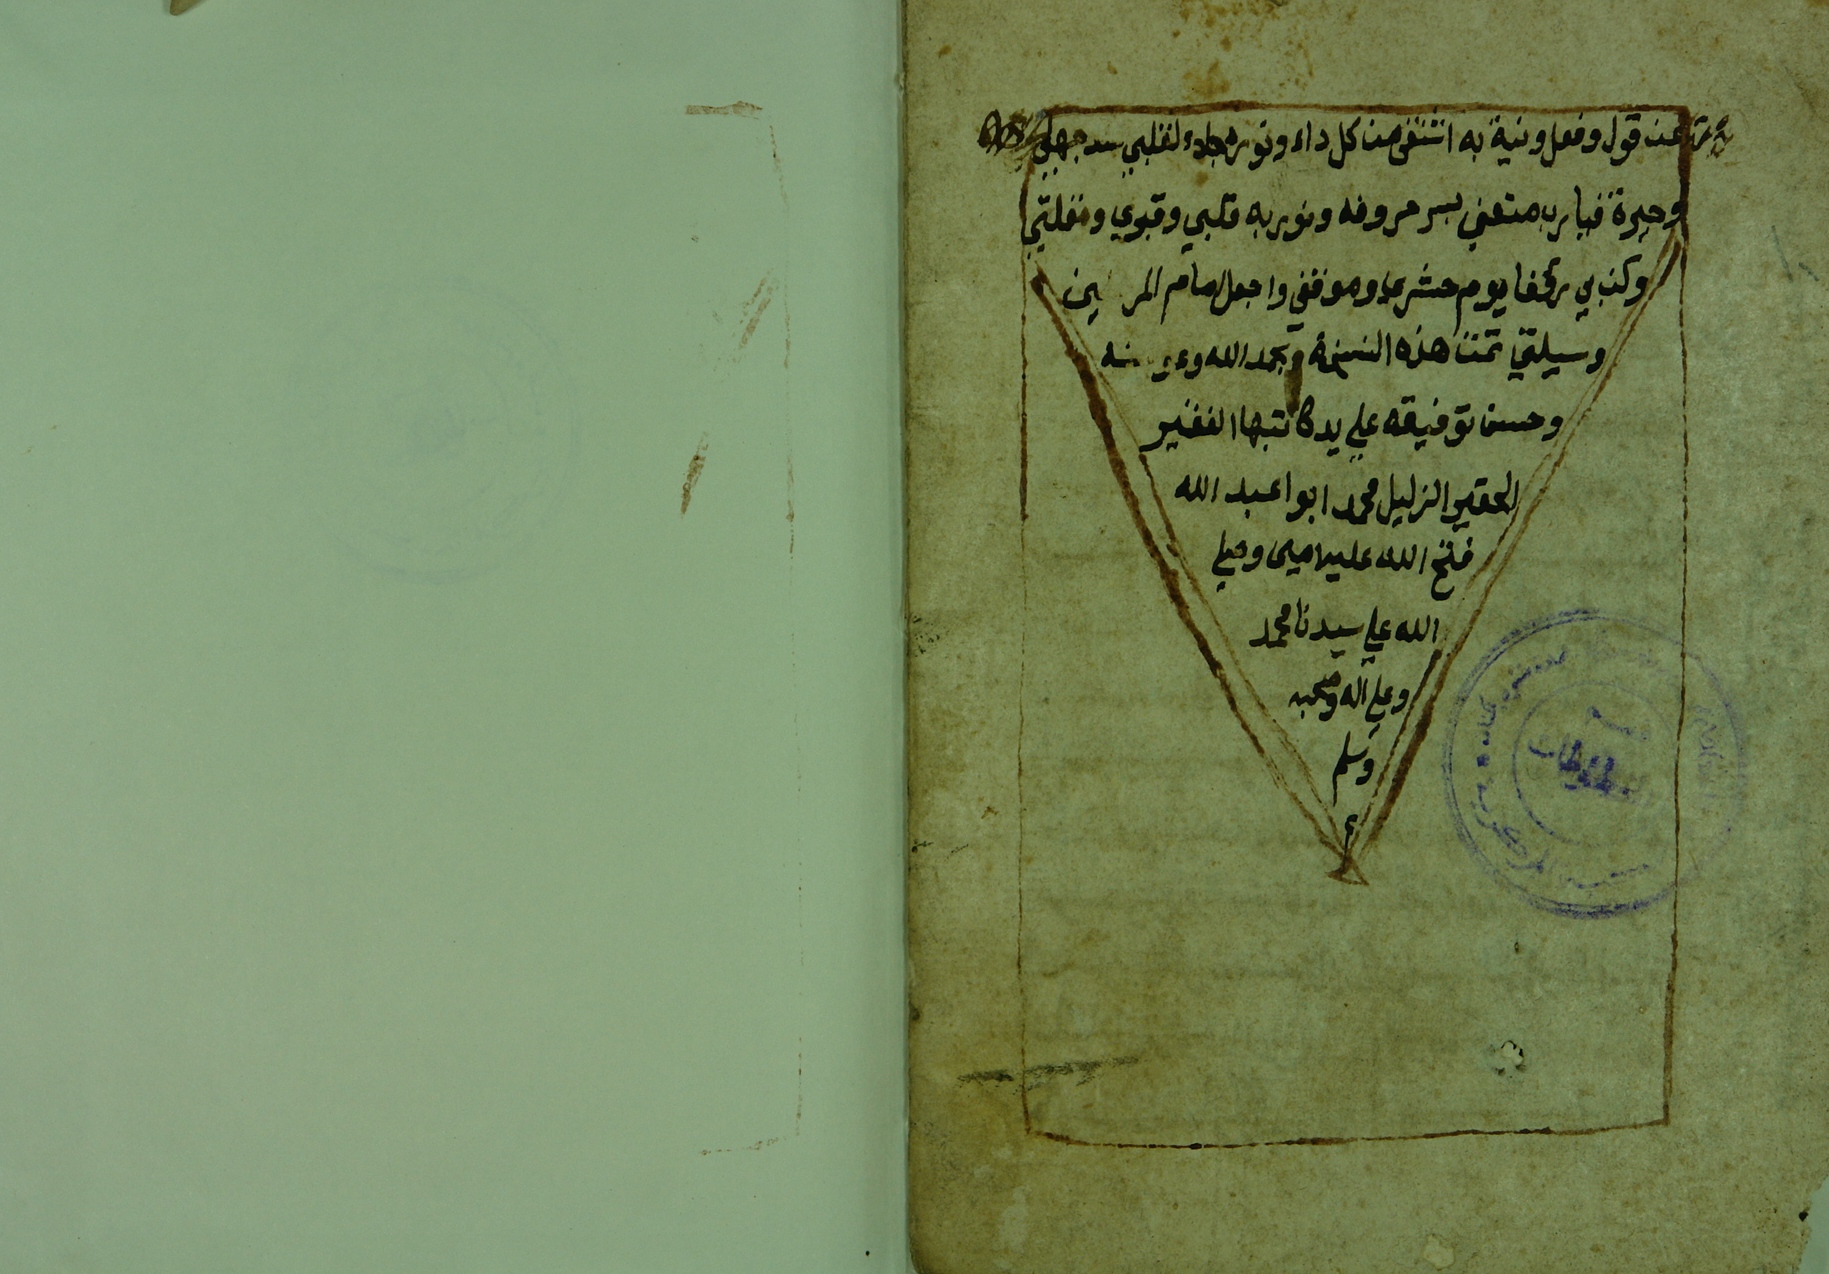 عن قول وفعل ونية به اشتفى من كل داء ونوره جلاء لقلبي من جهلي
وحيرة فيا رب متعني بسر حروفه ونور به قلبي وقبري ومقلتي
وكن بي رؤفا يوم حشري وموقفي واجعل امام المر ين
وسيلتي تمت هذه النسخة وبحمد الله وعو نه
وحسن توفيقه علي يد كاتبها الفقير
الحقير الزليل محمد ابوا عبد الله
فتح الله عليه امين وصلي
الله علي سيدنا محمد
وعلي آله وصحبه
وسلم
م
قسم
المخطوطات